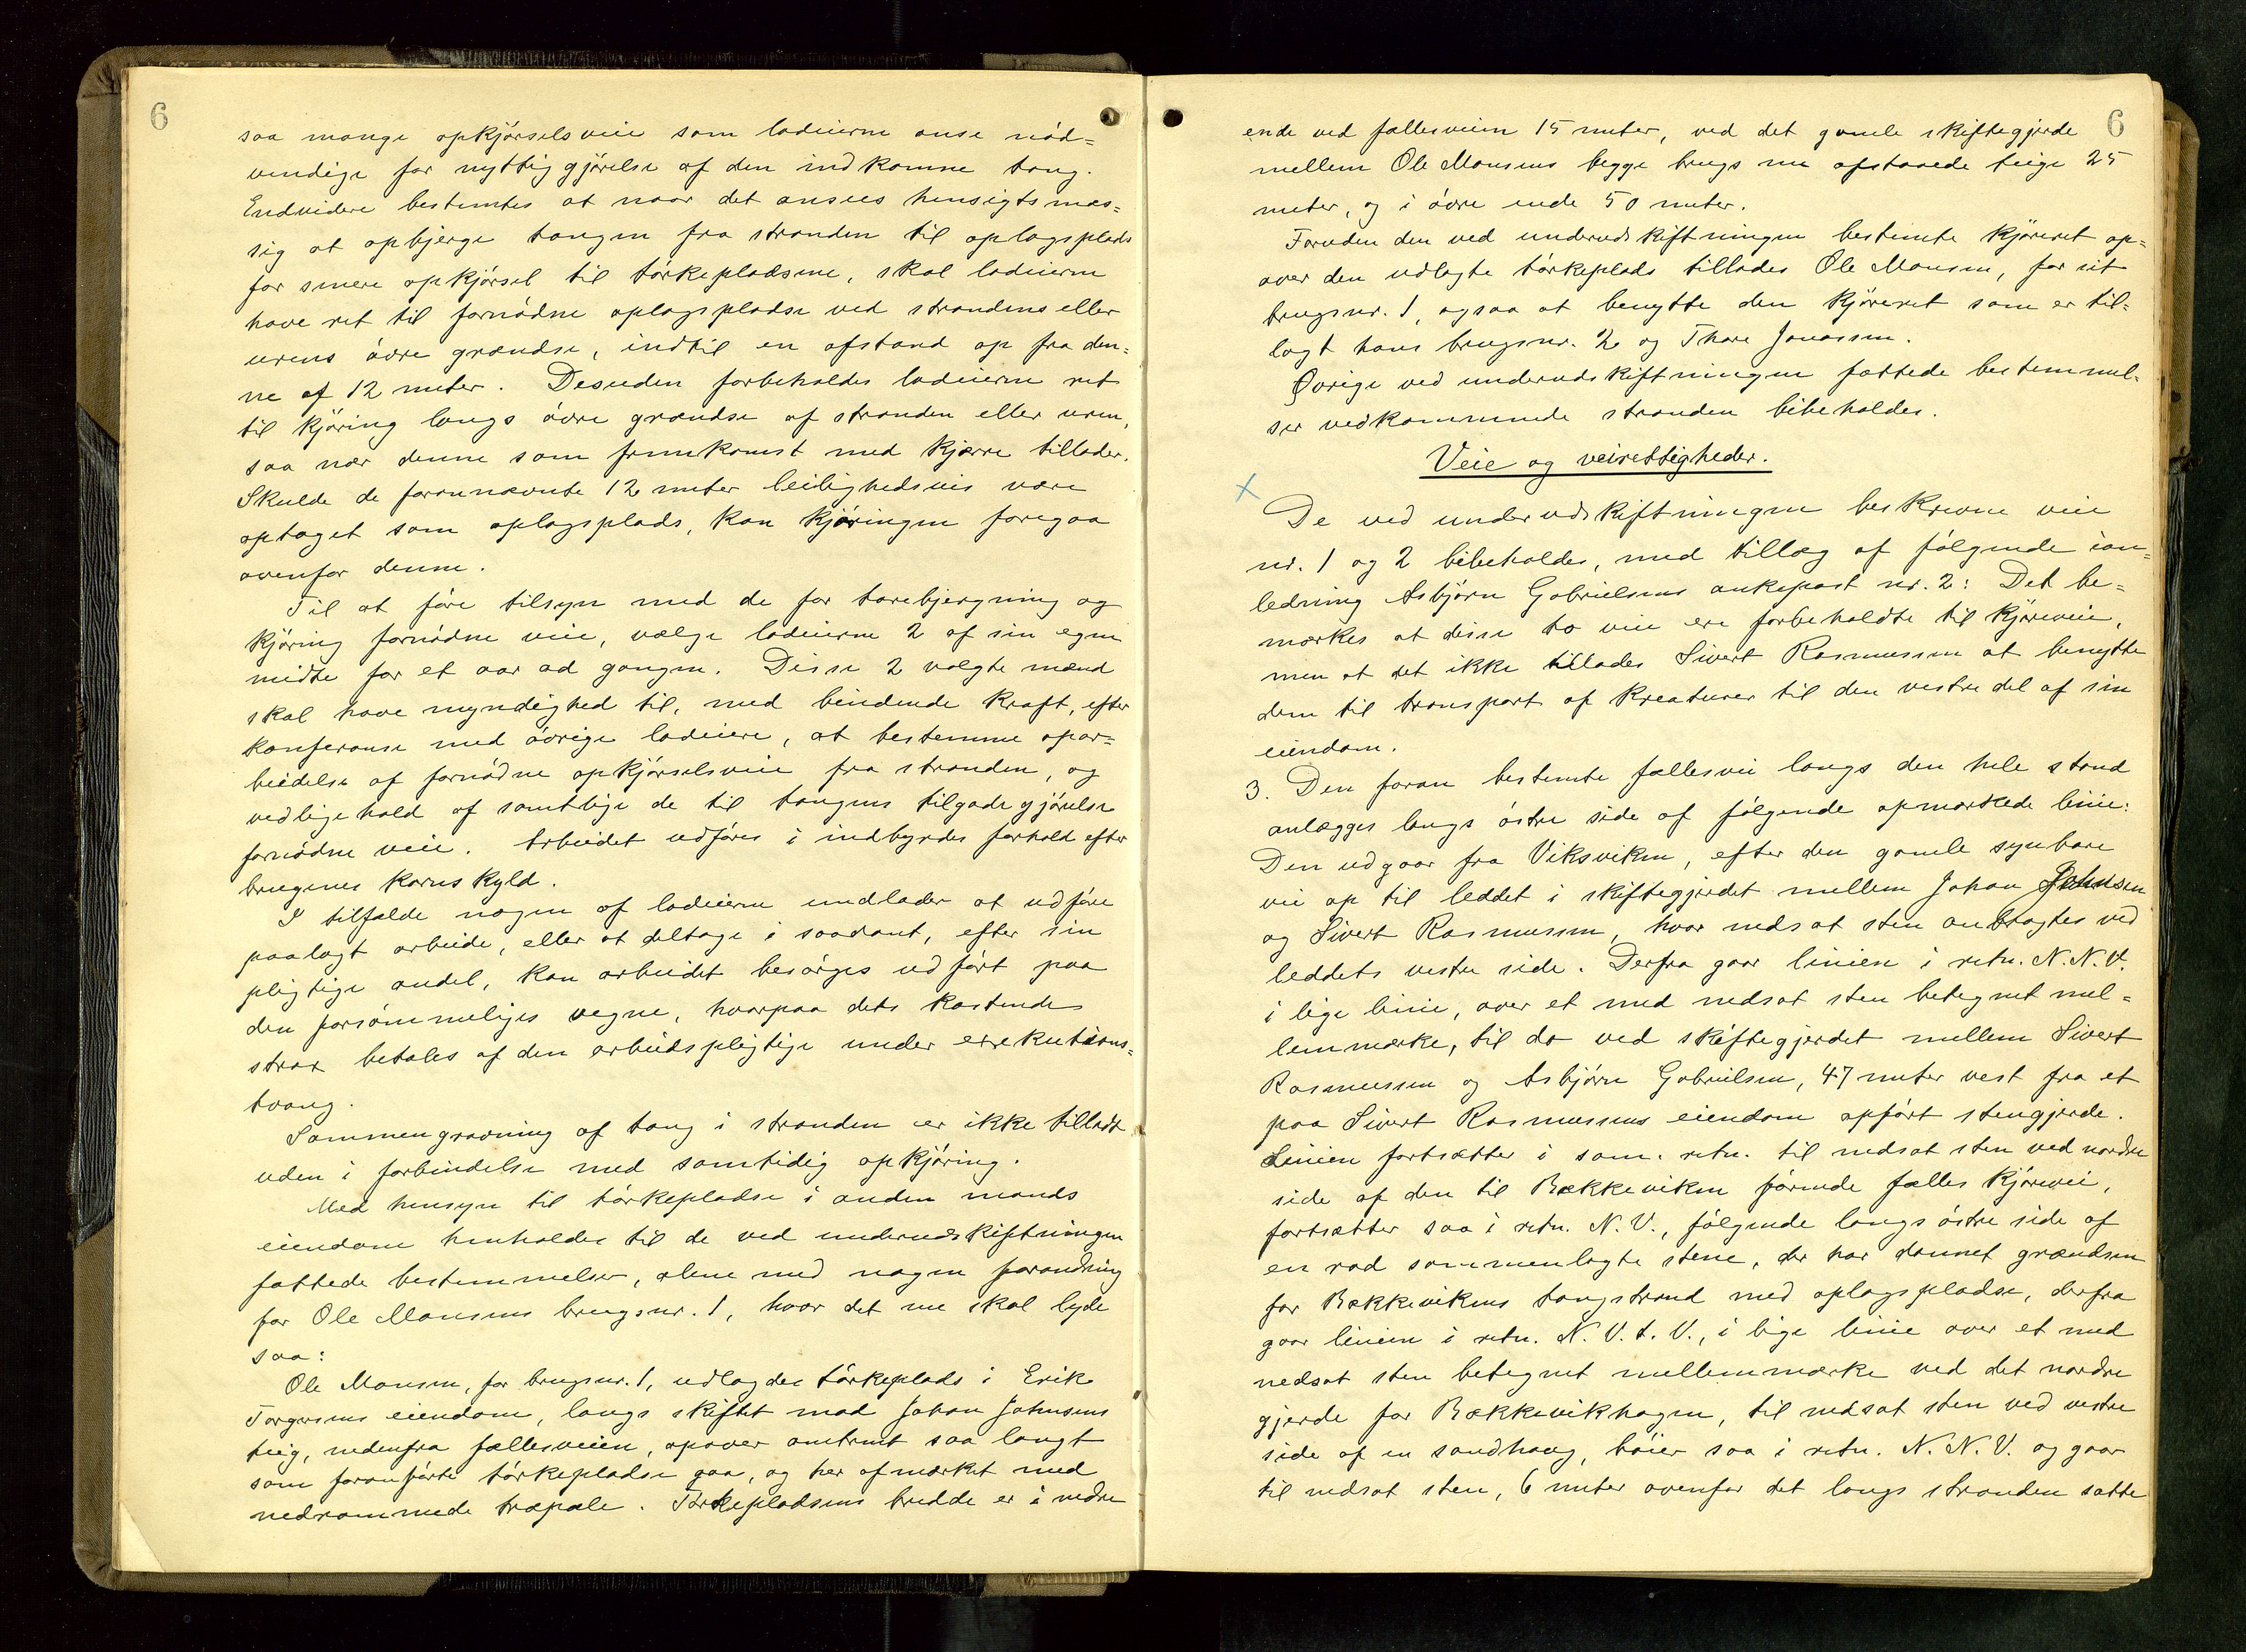 6
saa mange opkjørselsveie som lodeierne anse nød=
vendige for nyttiggjørelse af den indkomne tang.
Endvidere bestemtes at naar det ansees hensigtsmæs=
sig at opbjerge tangen fra stranden til oplagsplads
for senere opkjørsel til tørkepladsene, skal lodeierne
have ret til fornødne oplagspladse ved strandens eller
urens øvre grændse, indtil en afstand op fra den=
ne af 12 meter. Desuden forbeholdes lodeierne ret
til kjøring langs øvre grændse af stranden eller uren,
saa nær denne som fremkomst med kjærre tillader.
Skulde de forannævnte 12 meter leilighedsvis være
optaget som oplagsplads, kan kjøringen foregaa
ovenfor denne.
Til at føre tilsyn med de for tarebjergning og
kjøring fornødne veie, vælge lodeierne 2 af sin egen
midte for et aar ad gangen. Disse 2 valgte mænd
skal have myndighed til, med bindende kraft, efter
konferanse med øvrige lodeiere, at bestemme opar=
beidelse af fornødne opkjørselsveie fra stranden, og
vedligehold af samtlige de til tangens tilgodegjørelse
fornødne veie. Arbeidet udføres i indbyrdes forhold efter
brugenes kornskyld.
I tilfælde nogen af lodeierne undlader at udføre
paalagt arbeide, eller at deltage i saadant, efter sin
pligtige andel, kan arbeidet besørges udført paa
den forsømmeliges vegne, hvorpaa dets kostende
strax betales af den arbeidspligtige under exekutions=
tvang.
Sammengravning af tang i stranden er ikke tilladt
uden i forbindelse med samtidig opkjøring.
Med hensyn til tørkepladse i anden mands
eiendom henholdes til de ved underudskiftningen
fattede bestemmelser, alene med nogen forandring
for Ole Monsens brugsnr. 1, hvor det nu skal lyde
saa:
Ole Monsen, for brugsnr. 1, udlagdes tørkeplads i Erik
Torgersens eiendom, langs skiftet mod Johan Johnsens
teig, nedenfra fællesveien, opover omtrent saa langt
som foranførte tørkepladse gaa, og her afmærket med
nedrammede træpæle. Tørkepladsens bredde er i nedre
6
ende ved fællesveien 15 meter, ved det gamle skiftegjerde
mellem Ole Monsens begge brugs nu afstaaede teige 25
meter, og i øvre ende 50 meter.
Foruden den ved underudskiftningen bestemte kjøreret op=
over den udlagte tørkeplads tillades Ole Monsen, for sit
brugsnr. 1, ogsaa at benytte den kjøreret som er til=
lagt hans brugsnr. 2 og Thore Jonassen.
Øvrige ved underudskiftningen fattede bestemmel=
ser vedkommende stranden bibeholdes.
Veie og veirettigheder.
x
De ved underudskiftningen beskrevne veie
nr. 1 og 2 bibeholdes, med tillæg af følgende ian=
ledning Asbjørn Gabrielsens ankepost nr. 2: Det be=
mærkes at disse to veie ere forbeholdte til kjøreveie,
men at det ikke tillades Sivert Rasmussen at benytte
dem til transport af kreaturer til den vestre del af sin
eiendom.
3. Den foran bestemte fællesvei langs den hele strand
anlægges langs østre side af følgende opmærkede linie:
Den udgaar fra Viksviken, efter den gamle synbare
vei op til leddet i skiftegjerdet mellem Johan Johnsen
og Sivert Rasmussen, hvor nedsat sten anbragtes ved
leddets vestre side. Derfra gaar linien i retn. N. N. V.
i lige linie, over et med nedsat sten betegnet mel=
lemmærke, til do ved skiftegjerdet mellem Sivert
Rasmussen og Asbjørn Gabrielsen, 47 meter vest fra et
paa Sivert Rasmussens eiendom opført stengjerde.
Linien fortsætter i sam. retn. til nedsat sten ved nordre
side af den til Bækkeviken førende fælles kjørevei,
fortsætter saa i retn. N. V., følgende langs østre side af
en rad sammenlagte stene, der har dannet grændsen
for Bækkevikens tangstrand med oplagspladse, derfra
gaar linien i retn. N. V. t. V., i lige linie over et med
nedsat sten betegnet mellemmærke ved det nordre
gjerde for Bækkevikhagen, til nedsat sten ved vestre
side af en sandhaug, bøier saa i retn. N. N. V. og gaar
til nedsat sten, 6 meter ovenfor det langs stranden satte